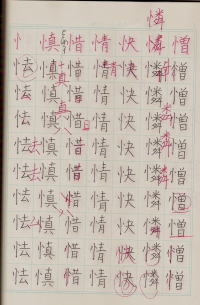 憐
忄 慎 惜 情 快 憐 憎
怯 慎 惜 情 快 憐 憎
怯 慎 惜 情 快 憐 憎
怯 慎 惜 情 快 憐 憎
怯 慎 惜 情 快 憐 憎
怯 慎 惜 情 快 憐 憎
怯 慎 惜 情 快 憐 憎
怯 慎 惜 情 快 憐 憎
怯 慎 惜 情 快 憐 憎